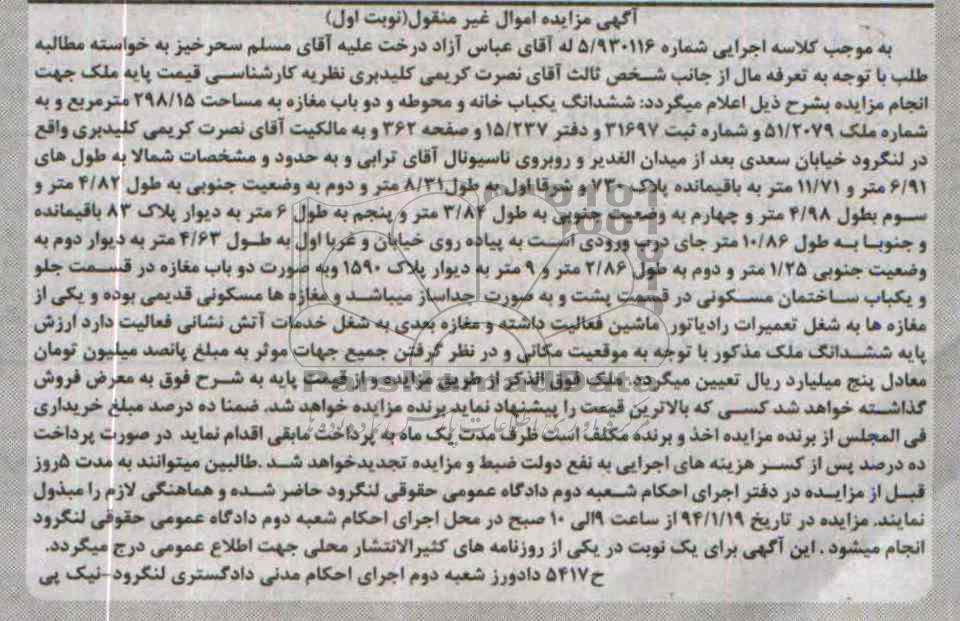 آگهی مزایده اموال غیر منقول(نوبت اول)
به موجب کلاسه اجرایی شماره ۵/۹۳۰۱۱۶ له آقای عباس آزاد درخت علیه آقای مسلم سحرخیز به خواسته مطالبه
طلب با توجه به تعرفه مال از جانب شخص ثالث آقای نصرت کریمی کلیدبری نظریه کارشناسی قیمت پایه ملک جهت
انجام مزایده بشرح ذیل اعلام میگردد: ششدانگ یکباب خانه و محوطه و دو باب مغازه به مساحت ۲۹۸/۱۵ مترمربع و به
شماره ملک ۵۱/۲۰۷۹ و شماره ثبت ۳۱۶۹۷ و دفتر ۱۵/۲۳۷ و صفحه ۳۶۲ و به مالکیت آقای نصرت کریمی کلیدبری واقع
در لنگرود خیابان سعدی بعد از میدان الغدیر و روبروی ناسیونال آقای ترابی و به حدود و مشخصات شمالا به طول های
۶/۹۱ متر و ۱۱/۷۱ متر به باقیمانده پلاک ۷۳۰ و شرقا اول به طول۸/۳۱ متر و دوم به وضعیت جنوبی به طول ۴/۸۲ متر و
سوم بطول ۴/۹۸ متر و چهارم به وضعیت جنوبی به طول ۳/۸۴ متر و پنجم به طول ۶ متر به دیوار پلاک ۸۳ باقیمانده
و جنوبا به طول ۱۰/۸۶ متر جای درب ورودی است به پیاده روی خیابان و غربا اول به طول ۴/۶۳ متر به دیوار دوم به
وضعیت جنوبی ۱/۲۵ متر و دوم به طول ۲/۸۶ متر و ۹ متر به دیوار پلاک ۱۵۹۰ وبه صورت دو باب مغازه در قسمت جلو
و یکباب ساختمان مسکونی در قسمت پشت و به صورت جداساز میباشد و مغازه ها مسکونی قدیمی بوده و یکی از
مغازه ها به شغل تعمیرات رادیاتور ماشین فعالیت داشته و مغازه بعدی به شغل خدمات آتش نشانی فعالیت دارد ارزش
پایه ششدانگ ملک مذکور با توجه به موقعیت مکانی و در نظر گرفتن جمیع جهات موثر به مبلغ پانصد میلیون تومان
معادل پنج میلیارد ریال تعیین میگردد. ملک فوق الذکر از طریق مزایده و از قیمت پایه به شرح فوق به معرض فروش
گذاشته خواهد شد کسی که بالاترین قیمت را پیشنهاد نماید برنده مزایده خواهد شد. ضمنا ده درصد مبلغ خریداری
فی المجلس از برنده مزایده اخذ و برنده مکلف است ظرف مدت یک ماه به پرداخت مابقی اقدام نماید در صورت پرداخت
ده درصد پس از کسر هزینه های اجرایی به نفع دولت ضبط و مزایده تجدیدخواهد شد .طالبین میتوانند به مدت ۵روز
قبل از مزایده در دفتر اجرای احکام شعبه دوم دادگاه عمومی حقوقی لنگرود حاضر شده و هماهنگی لازم را مبذول
نمایند. مزایده در تاریخ ۹۴/۱/۱۹ از ساعت ۹الی ۱۰ صبح در محل اجرای احکام شعبه دوم دادگاه عمومی حقوقی لنگرود
انجام میشود . این آگهی برای یک نوبت در یکی از روزنامه های کثیرالانتشار محلی جهت اطلاع عمومی درج میگردد.
ح۵۴۱۷ دادورز شعبه دوم اجرای احکام مدنی دادگستری لنگرود-نیک پی
ParsNamadData